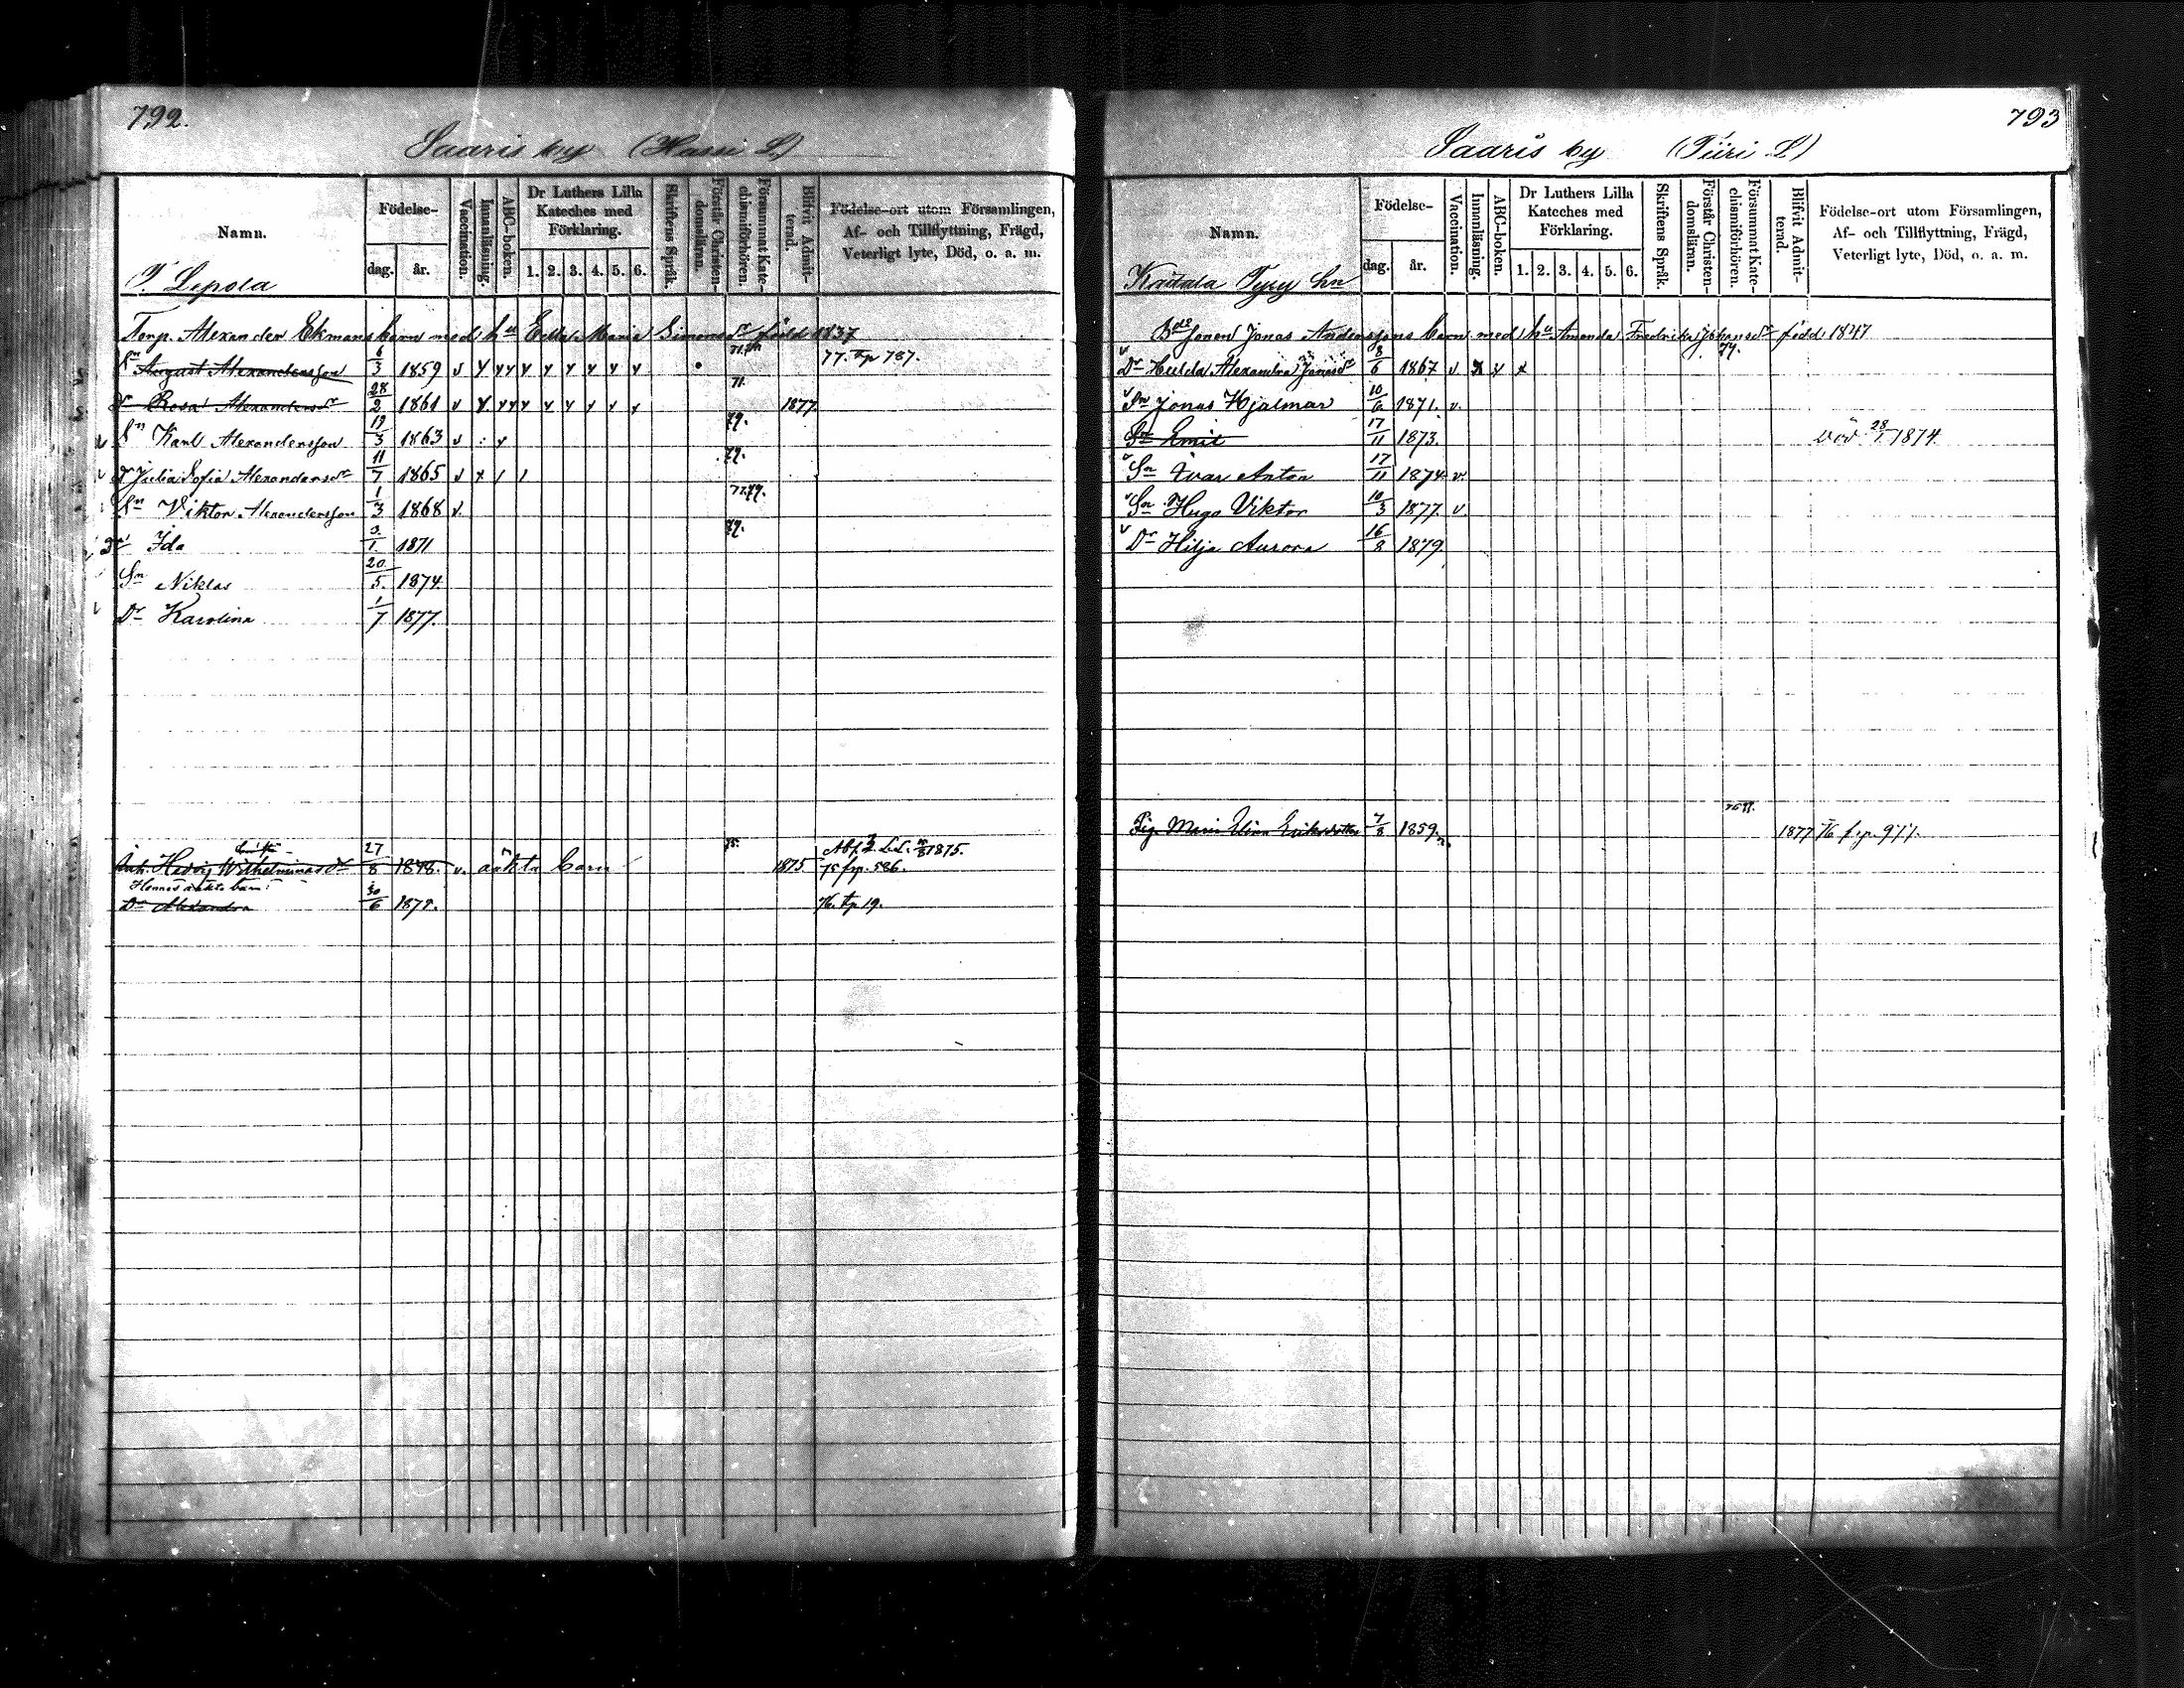 792.
Saaris by (Hassi L)
Namn.
Födelse-
dag.
år.
Vaccination.
Innanläsning.
ABC-boken.
Dr Luthers Lilla Kateches med Förklaring.
1. 2. 3. 4. 5. 6.
Skriftens Språk.
Förstår Christendomsläran.
Försummat Katechismiförhören.
Blifvit Admitterad.
Födelse-ort utom Församlingen,
Af- och Tillflyttning, Frägd,
Veterligt lyte, Död, o. a. m.
T. Lepola
Torp. Alexander Ekmans barn med hu Eella Maria Simonsdr född 1837
Sn August Alexandersson 6/3 1859 v 77. tp 787.
Dr Rosa Alexandersdr 28/2 1861 v 71. 1877.
Sn Karl Alexandersson 19/3 1863 v 79.
Dr Julia Sofia Alexandersdr 11/7 1865 v 79.
Sn Viktor Alexandersson 1/3 1868 v. 77.79.
Dr Ida 3/1 1871 79.
Sn Niklas 20/5. 1874.
Dr Karolina 1/7 1877.
Hedvig Wilhelminasdr 27/8 1848. v. oäkta barn 75. 1875 75 frp. 586.
Hennes oäkta barn:
Dr Alexandra 30/6 1872. 76. tp 19.
793
Saaris by (Tiiri L)
Namn.
Födelse-
dag.
år.
Vaccination.
Innanläsning.
ABC-boken.
Dr Luthers Lilla Kateches med Förklaring.
1. 2. 3. 4. 5. 6.
Skriftens Språk.
Förstår Christendomsläran.
Försummat Katechismiförhören.
Blifvit Admitterad.
Födelse-ort utom Församlingen,
Af- och Tillflyttning, Frägd,
Veterligt lyte, Död, o. a. m.
Kädala Tyry hn
Bdesonen Jonas Anderssons barn med hu Amanda Fredrika Johansdr född 1847
Dr Hulda Alexandra Jonasdr 8/6 1867 v 79.
Sn Jonas Hjalmar 10/6 1871. v.
Sn Emil 17/11 1873. död 28/1 1874.
Sn Ivar Anton 17/11 1874. v.
Sn Hugo Viktor 10/3 1877. v.
Dr Hilja Aurora 16/8 1879.
Pig. Maria Elina Eriksdotter 7/8 1859. 1877 76 frp. 977.